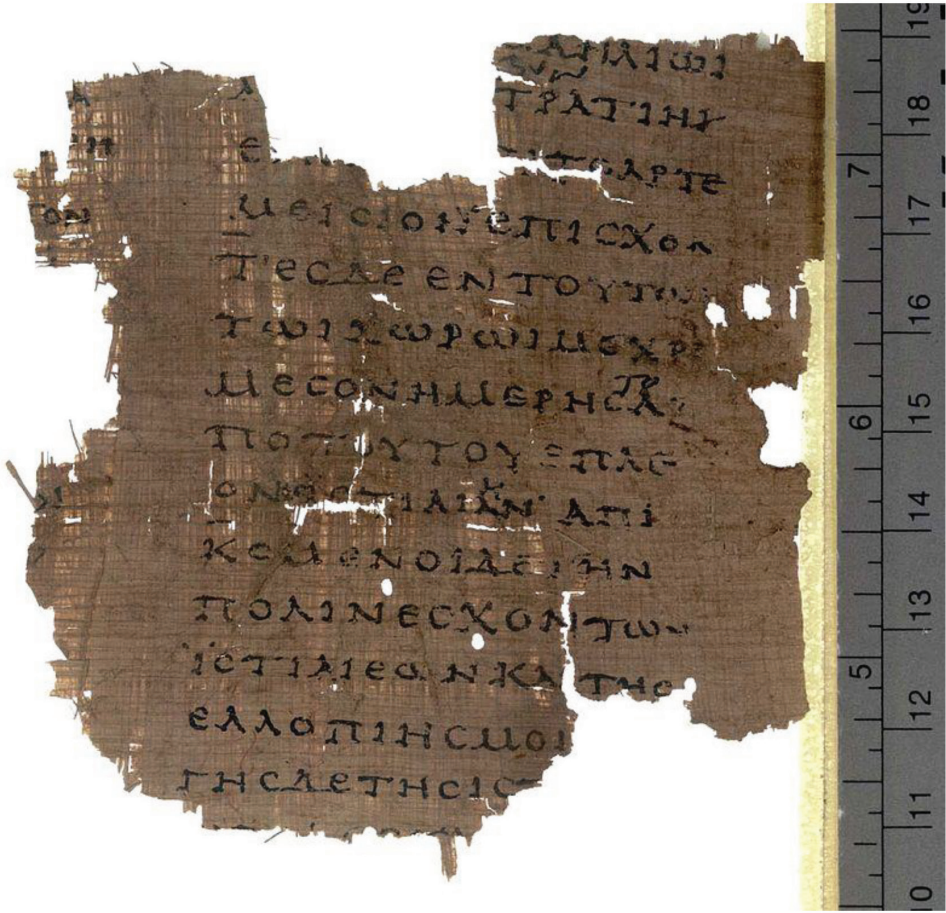 ΗΛΙΩΙ
ΤΡΑΤΙΗ
ΑΡΤΕ
ΜΕΙCΙΟΝ ΕΠΙCΧΟΝ
ΤΕCΔΕΕΝΤΟΥΤΩ
ΤΩΙΧΩΡΩΙΜΕΧΡ
ΜΕCΟΝΗΜΕΡΗCΑ
ΠΟΤΟΥΤΟΥΕΠΛΕ
ΟΝΕCΤΙΑΙΑΝ ΑΠΙ
ΚΟΜΕΝΟΙΔΕΤΗΝ
ΠΟΛΙΝΕCΧΟΝΤΩΝ
ΪCΤΙΑΙΕΩΝΚΑΙΤΗC
ΕΛΛΟΠΙΗCΜΟΙ
ΓΗCΔΕΤΗCΙC
19
18
17
16
15
14
13
12
11
10
7
6
5